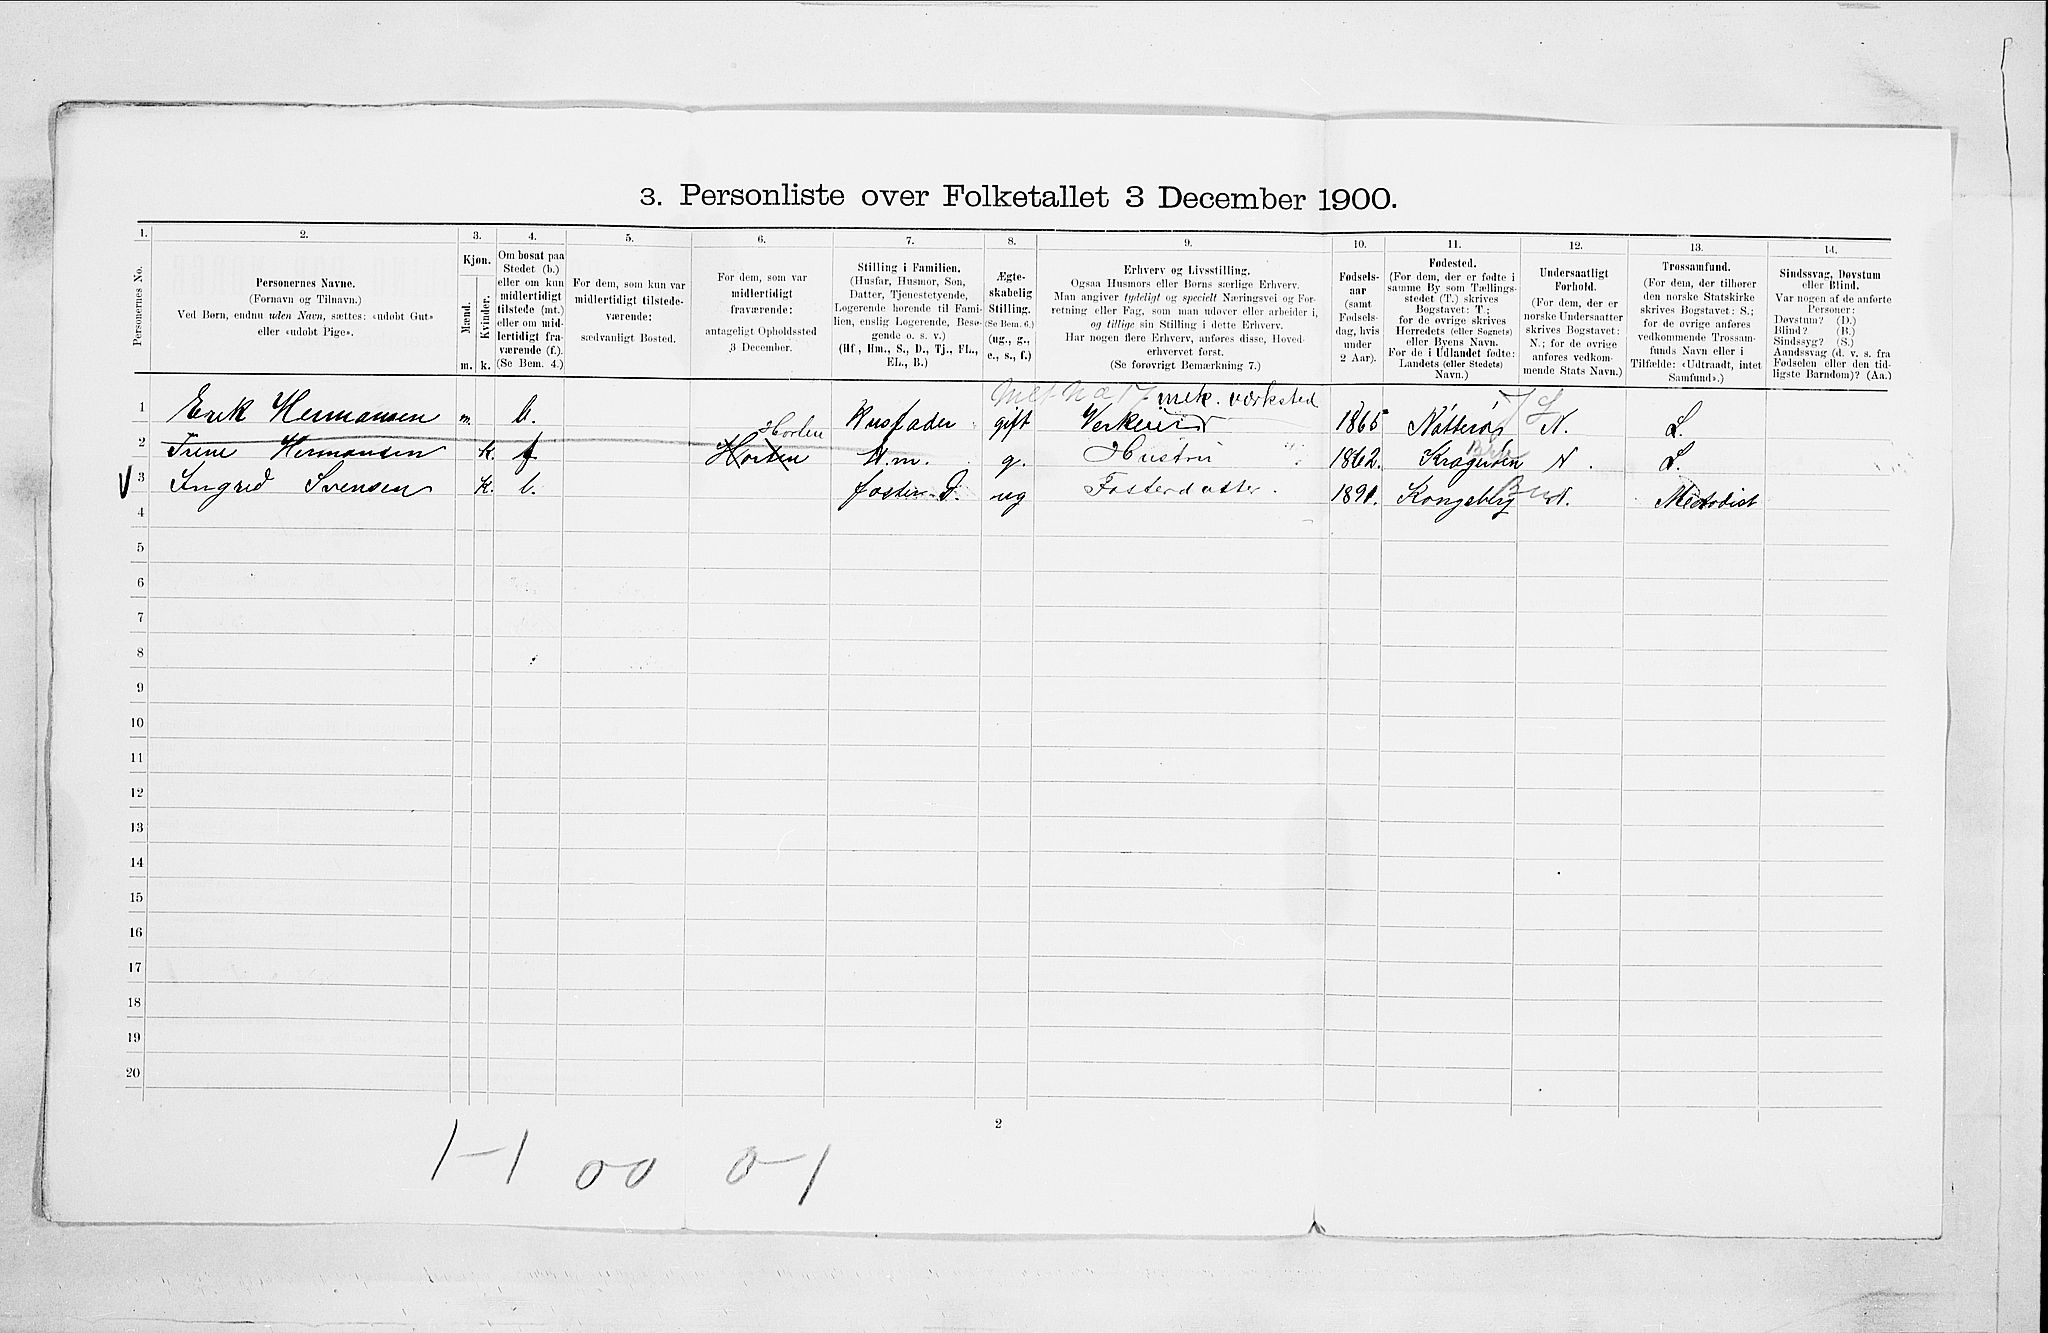 3. Personliste over Folketallet 3 December 1900.
1. 2. 3. 4. 5. 6. 7. 8. 9. 10. 11. 12. 13. 14.
Personernes No.
Personernes Navne.
(Fornavn og Tilnavn.)
Ved Børn, endnu uden Navn, sættes: «udøbt Gut»
eller «udøbt Pige».
Kjøn.
Mænd.
Kvinder.
m. k.
Om bosat paa
Stedet (b.)
eller om kun
midlertidigt
tilstede (mt.)
eller om mid-
lertidigt fra-
værende (f.).
(Se Bem. 4.)
For dem, som kun var
midlertidigt tilstede-
værende:
sædvanligt Bosted.
For dem, som var
midlertidigt
fraværende:
antageligt Opholdssted
3 December.
Stilling i Familien.
(Husfar, Husmor, Søn,
Datter, Tjenestetyende,
Logerende hørende til Fami-
lien, enslig Logerende, Besø-
gende o. s. v.)
(Hf., Hm., S., D., Tj., FL.,
EL., B.)
Ægte-
skabelig
Stilling.
(Se Bem. 6.)
(ug., g.,
e., s., f.)
Erhverv og Livsstilling.
Ogsaa Husmors eller Børns særlige Erhverv.
Man angiver tydeligt og specielt Næringsvei og For-
retning eller Fag, som man udøver eller arbeider i,
og tillige sin Stilling i dette Erhverv.
Har nogen flere Erhverv, anføres disse, Hoved-
erhvervet først.
(Se forøvrigt Bemærkning 7.)
Fødsels-
aar
(samt
Fødsels-
dag, hvis
under
2 Aar).
Fødested.
(For dem, der er fødte i
samme By som Tællings-
stedet (T.) skrives
Bogstavet: T.;
for de øvrige skrives
Herredets (eller Sognets)
eller Byens Navn.
For de i Udlandet fødte:
Landets (eller Stedets)
Navn.)
Undersaatligt
Forhold.
(For dem, der er
norske Undersaatter
skrives Bogstavet:
N.; for de øvrige
anføres vedkom-
mende Stats Navn.)
Trossamfund.
(For dem, der tilhører
den norske Statskirke
skrives Bogstavet: S.;
for de øvrige anføres
vedkommende Trossam-
funds Navn eller i
Tilfælde: «Udtraadt, intet
Samfund».)
Sindssvag, Døvstum
eller Blind.
Var nogen af de anførte
Personer:
Døvstum? (D.)
Blind? (B.)
Sindssyg? (S.)
Aandssvag (d. v. s. fra
Fødselen eller den tid-
ligste Barndom)? (Aa.)
mek. værksted
1 Erik Hermansen m. b. Husfader gift 1865 Nøtterø N. L.
Horten
2 Irene Hermansen k. f Horten H.m. g. Hustru 1862. Kragerøen N. L.
3 Ingrid Svensen k. b. foster D. ug Fosterdatter. 1891. Kongsberg N. Metodist
4
5
6
7
8
9
10
11
12
13
14
15
16
17
18
19
20
2
1-1 00 0-1